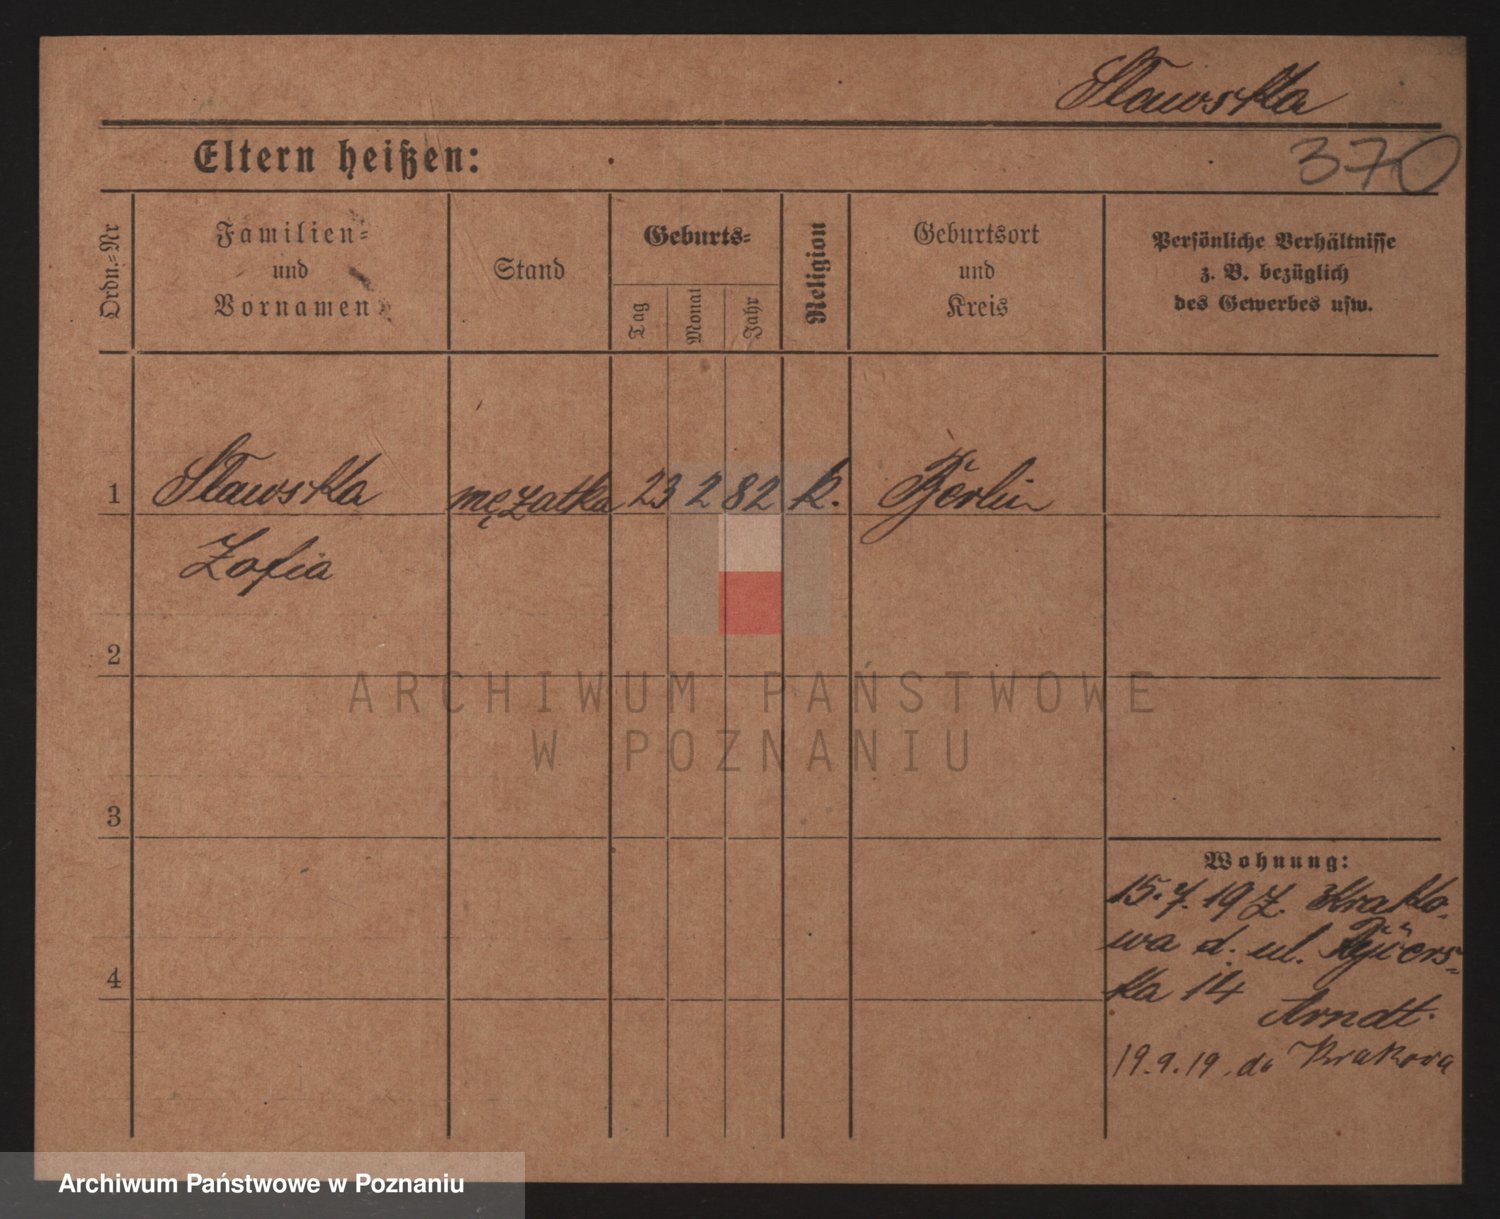 Sławska
370
Eltern heißen:
Ordn.=Nr
Familien=
und
Vornamen
Stand
Geburts=
Tag
Monat
Jahr
Religion
Geburtsort
und
Kreis
Persönliche Verhältnisse
z. B. bezüglich
des Gewerbes usw.
1 Sławska mężatka 23 2 82 k. Berlin
Zofia
2
3
4
Wohnung:
15.7.19 Z. Krako-
wa d. ul.
ka 14
Arndt.
19.9.19. do Krakowa
ARCHIWUM PAŃSTWOWE
W POZNANIU
Archiwum Państwowe w Poznaniu